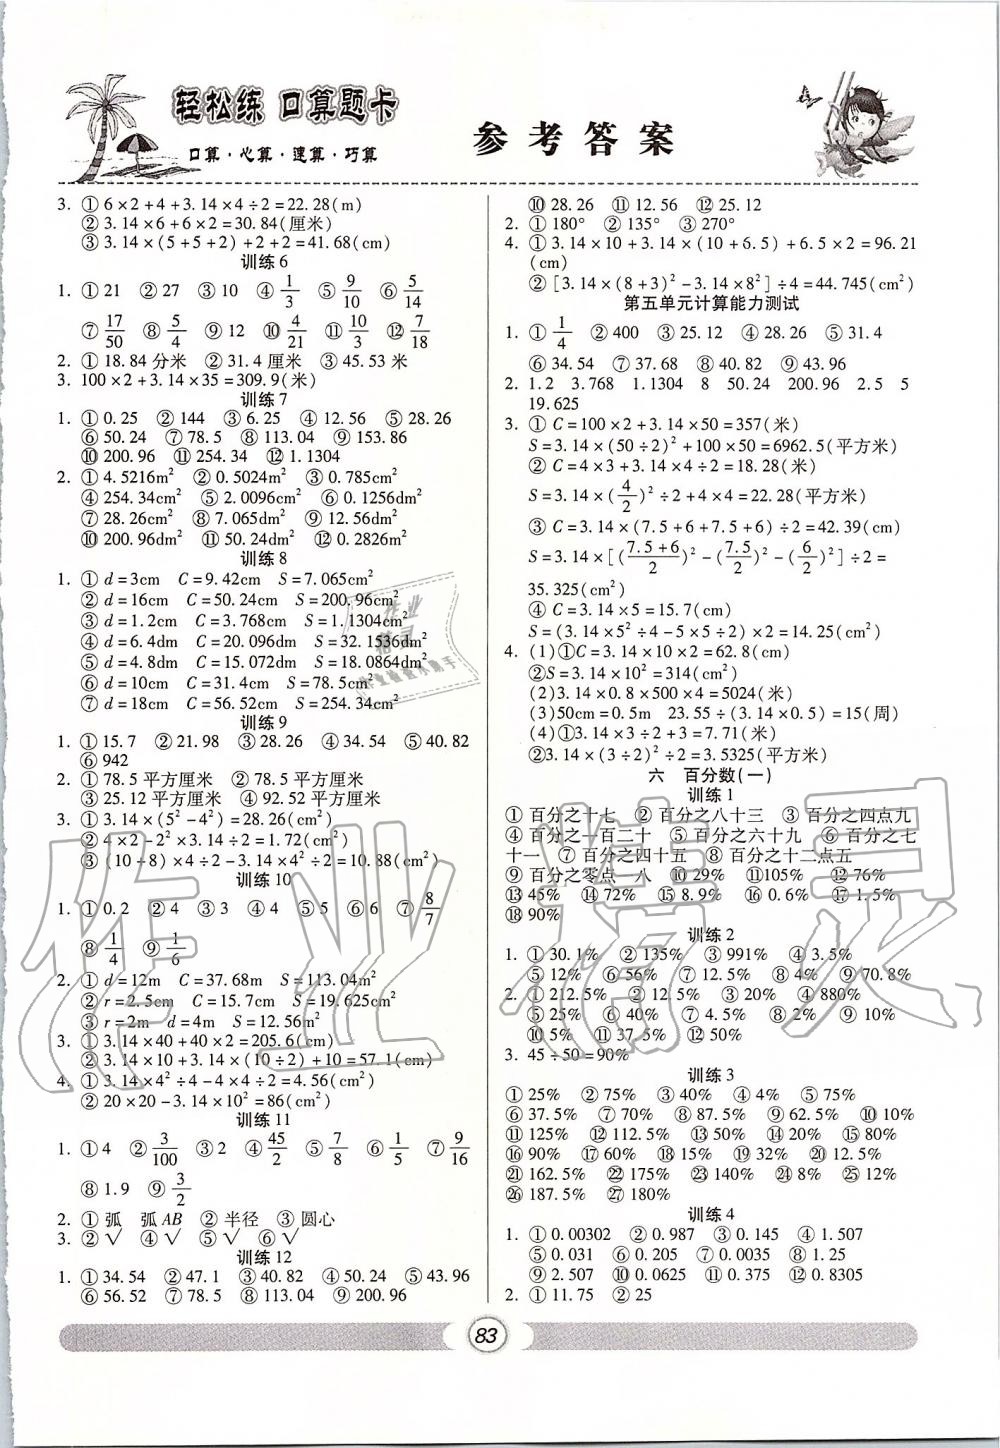 轻松练 口算题卡
口算·心算·速算·巧算
参考答案
3. ①6×2+4+3.14×4÷2=22.28(m)
②3.14×6+6×2=30.84(厘米)
③3.14×(5+5+2)+2+2=41.68(cm)
训练6
1. ①21 ②27 ③10 ④1/3 ⑤9/10 ⑥5/14
⑦17/50 ⑧5/4 ⑨12 ⑩4/21 ⑪10/3 ⑫7/18
2. ①18.84分米 ②31.4厘米 ③45.53米
3. 100×2+3.14×35=309.9(米)
训练7
1. ①0.25 ②144 ③6.25 ④12.56 ⑤28.26
⑥50.24 ⑦78.5 ⑧113.04 ⑨153.86
⑩200.96 ⑪254.34 ⑫1.1304
2. ①4.5216m² ②0.5024m² ③0.785cm²
④254.34cm² ⑤2.0096cm² ⑥0.1256dm²
⑦28.26cm² ⑧7.065dm² ⑨12.56dm²
⑩200.96dm² ⑪50.24dm² ⑫0.2826m²
训练8
1. ①d=3cm C=9.42cm S=7.065cm²
②d=16cm C=50.24cm S=200.96cm²
③d=1.2cm C=3.768cm S=1.1304cm²
④d=6.4dm C=20.096dm S=32.1536dm²
⑤d=4.8dm C=15.072dm S=18.0864dm²
⑥d=10cm C=31.4cm S=78.5cm²
⑦d=18cm C=56.52cm S=254.34cm²
训练9
1. ①15.7 ②21.98 ③28.26 ④31.4 ⑤40.82
⑥942
2. ①78.5平方厘米 ②78.5平方厘米
③25.12平方厘米 ④92.52平方厘米
3. ①3.14×(5²-4²)=28.26(cm²)
②4×2-2²×3.14÷2=1.72(cm²)
③(10+8)×4÷2-3.14×4²÷2=10.88(cm²)
训练10
1. ①0.2 ②4 ③3 ④4 ⑤5 ⑥6 ⑦8/7
⑧1/4 ⑨1/6
2. ①d=12m C=37.68m S=113.04m²
②r=2.5cm C=15.7cm S=19.625cm²
③r=2m d=4m S=12.56m²
3. ①3.14×40+40×2=205.6(cm)
②3.14×10+3.14×(10÷2)+10=57.1(cm)
4. ①3.14×4²÷4-4×4÷2=4.56(cm²)
②20×20-3.14×10²=86(cm²)
训练11
1. ①4 ②3/100 ③2 ④45/2 ⑤7/8 ⑥1/5 ⑦9/16
⑧1.9 ⑨3/2
2. ①弧 弧AB ②半径 ③圆心
3. ②√ ④√ ⑤√ ⑥√
训练12
1. ①34.54 ②47.1 ③40.82 ④50.24 ⑤43.96
⑥56.52 ⑦78.5 ⑧113.04 ⑨200.96
⑩28.26 ⑪12.56 ⑫25.12
2. ①180° ②135° ③270°
4. ①3.14×10+3.14×(10+6.5)+6.5×2=96.21
(cm)
②[3.14×(8+3)²-3.14×8²]÷4=44.745(cm²)
第五单元计算能力测试
1. ①1/4 ②400 ③25.12 ④28.26 ⑤31.4
⑥34.54 ⑦37.68 ⑧40.82 ⑨43.96
2. 1.2 3.768 1.1304 8 50.24 200.96 2.5 5
19.625
3. ①C=100×2+3.14×50=357(米)
S=3.14×(50÷2)²+100×50=6962.5(平方米)
②C=4×3+3.14×4÷2=18.28(米)
S=3.14×(4/2)²÷2+4×4=22.28(平方米)
③C=3.14×(7.5+6+7.5+6)÷2=42.39(cm)
S=3.14×[((7.5+6)/2)²-(7.5/2)²-(6/2)²]÷2=
35.325(cm²)
④C=3.14×5=15.7(cm)
S=(3.14×5²÷4-5×5÷2)×2=14.25(cm²)
4. (1)①C=3.14×10×2=62.8(cm)
②S=3.14×10²=314(cm²)
(2)3.14×0.8×500×4=5024(米)
(3)50cm=0.5m 23.55÷(3.14×0.5)=15(周)
(4)①3.14×3÷2+3=7.71(米)
②3.14×(3÷2)²÷2=3.5325(平方米)
六 百分数(一)
训练1
①百分之十七 ②百分之八十三 ③百分之四点九
④百分之一百二十 ⑤百分之六十九 ⑥百分之七
十一 ⑦百分之四十五 ⑧百分之十二点五
⑨百分之零点一八 ⑩29% ⑪105% ⑫76%
⑬45% ⑭72% ⑮8.9% ⑯0.6% ⑰1.5%
⑱90%
训练2
1. ①30.1% ②135% ③991% ④3.5%
⑤12% ⑥56% ⑦12.5% ⑧4% ⑨70.8%
2. ①212.5% ②12.5% ③20% ④880%
⑤25% ⑥40% ⑦4.5% ⑧2% ⑨10%
⑩5% ⑪37.5% ⑫50%
3. 45÷50=90%
训练3
①25% ②75% ③40% ④4% ⑤75%
⑥37.5% ⑦70% ⑧87.5% ⑨62.5% ⑩10%
⑪125% ⑫112.5% ⑬50% ⑭20% ⑮87.5%
⑯90% ⑰60% ⑱15% ⑲32% ⑳12.5%
㉑162.5% ㉒175% ㉓140% ㉔8% ㉕12%
㉖187.5% ㉗180%
训练4
1. ①0.00302 ②0.987 ③0.145 ④1.507
⑤0.031 ⑥0.205 ⑦0.0035 ⑧1.25
⑨2.507 ⑩0.0625 ⑪0.375 ⑫0.8305
2. ①11.75 ②25
83
作业精灵
作业
精灵
作业检查小助手